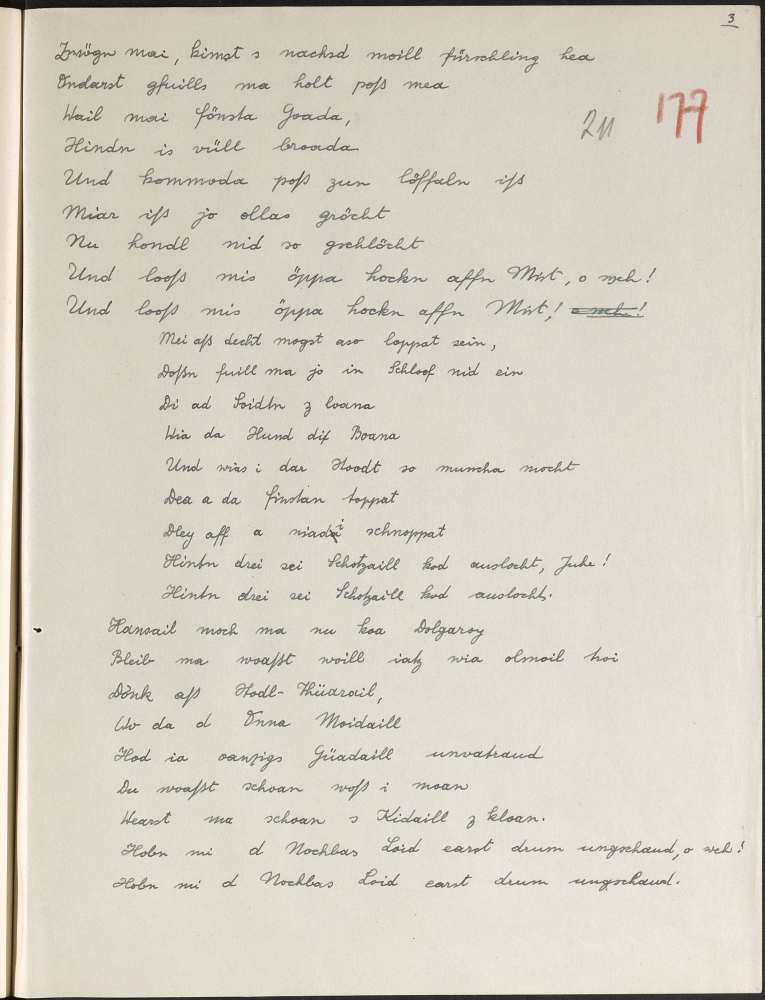 3
Znögn mai, kimst s nachsd moill fürschling hea
Ondarst gfuills ma holt poß mea
Wail mai fönsta Goada,
211 177
Hindn is vüll broada
Und kommoda poß zun löffaln iß
Miar iß jo ollas gröcht
Nu hondl nid so gschlöcht
Und looß mis öppa hockn affn Mist, o weh!
Und looß mis öppa hockn affn Mist! o weh!
Mei aß decht mogst aso loppat sein,
Doßn fuill ma jo in Schloof nid ein
Di ad Soidtn z loana
Wia da Hund dix Boana
Und wias i dar Stoodt so muncha mocht
Dea a da finstan toppat
Dley aff a niadai schnoppat
Hintn drei sei Schotzaill kod auslocht, Juhe!
Hintn drei sei Schotzaill kod auslocht.
Hansail moch ma nu koa Dolgaroy
Bleib ma woaßt woill iatz wia olmoil troi
Dönk aß Stodl-Thüarail,
Wo da d Onna Moidaill
Hod ia oanzigs Güadaill unvatraud
Du woaßt schoan woß i moan
Wearst ma schoan s Kidaill z kloan.
Hobn mi d Nochbas Loid earst drum ungschaud, o weh!
Hobn mi d Nochbas Loid earst drum ungschaud.